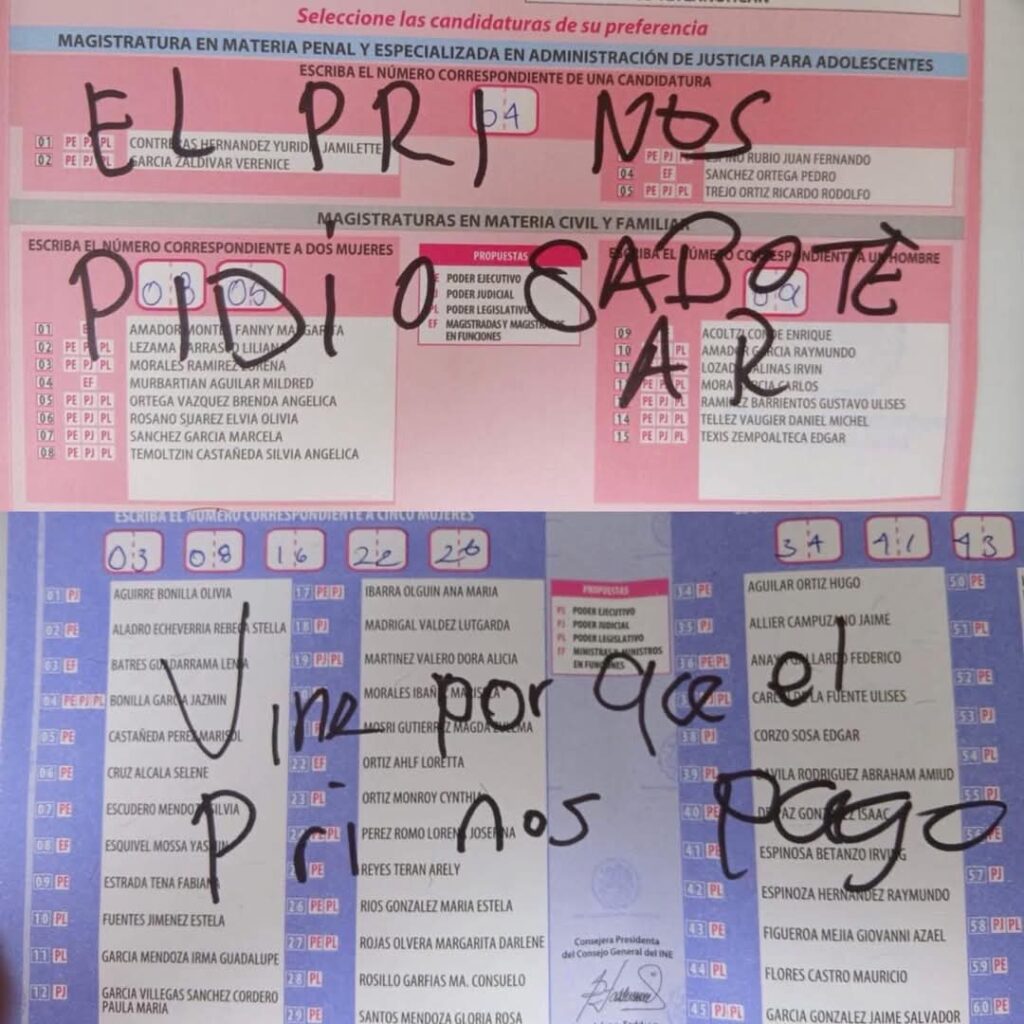 Seleccione las candidaturas de su preferencia
MAGISTRATURA EN MATERIA PENAL Y ESPECIALIZADA EN ADMINISTRACIÓN DE JUSTICIA PARA ADOLESCENTES
ESCRIBA EL NÚMERO CORRESPONDIENTE DE UNA CANDIDATURA
EL PRI NOS
04
01 PE PJ PL CONTRERAS HERNANDEZ YURIDI JAMILETTE
02 PE PJ PL GARCIA ZALDIVAR VERENICE
PE PJ RUBIO JUAN FERNANDO
04 EF SANCHEZ ORTEGA PEDRO
05 PE PJ PL TREJO ORTIZ RICARDO RODOLFO
MAGISTRATURAS EN MATERIA CIVIL Y FAMILIAR
PIDIO SABOTE
AR
ESCRIBA EL NÚMERO CORRESPONDIENTE A DOS MUJERES
03 05
01 AMADOR MONTE FANNY MARGARITA
02 PE PL LEZAMA CARRASCO LILIANA
03 PE PJ PL MORALES RAMIREZ LORENA
04 EF MURBARTIAN AGUILAR MILDRED
05 PE PJ PL ORTEGA VAZQUEZ BRENDA ANGELICA
06 PE PJ PL ROSANO SUAREZ ELVIA OLIVIA
07 PE PJ PL SANCHEZ GARCIA MARCELA
08 PE PJ PL TEMOLTZIN CASTAÑEDA SILVIA ANGELICA
PROPUESTAS
PODER EJECUTIVO
PODER JUDICIAL
PL PODER LEGISLATIVO
EF MAGISTRADAS Y MAGISTRADOS
EN FUNCIONES
ESCRIBA EL NÚMERO CORRESPONDIENTE A UN HOMBRE
09 ACOLTZI CONDE ENRIQUE
10 PL AMADOR GARCIA RAYMUNDO
11 PL LOZADA SALINAS IRVIN
PE PJ PL MORA GARCIA CARLOS
PE PJ PL RAMIREZ BARRIENTOS GUSTAVO ULISES
14 PE PJ PL TELLEZ VAUGIER DANIEL MICHEL
15 PE PJ PL TEXIS ZEMPOALTECA EDGAR
ESCRIBA EL NÚMERO CORRESPONDIENTE A CINCO MUJERES
03 08 16 22 26
34 41 43
Vine porque el
pri nos pago
01 PJ AGUIRRE BONILLA OLIVIA
02 PE ALADRO ECHEVERRIA REBECA STELLA
03 EF BATRES GUADARRAMA LENIA
04 PE PJ PL BONILLA GARCIA JAZMIN
05 PE CASTAÑEDA PEREZ MARISOL
06 PE CRUZ ALCALA SELENE
07 PE ESCUDERO MENDOZA SILVIA
08 EF ESQUIVEL MOSSA YASMIN
09 PE ESTRADA TENA FABIANA
10 PL FUENTES JIMENEZ ESTELA
11 PL GARCIA MENDOZA IRMA GUADALUPE
12 PJ GARCIA VILLEGAS SANCHEZ CORDERO
PAULA MARIA
17 PE PJ IBARRA OLGUIN ANA MARIA
18 PJ MADRIGAL VALDEZ LUTGARDA
19 PJ PL MARTINEZ VALERO DORA ALICIA
MORALES IBAÑEZ MARISELA
MOSRI GUTIERREZ MAGDA ZULEMA
22 EF ORTIZ AHLF LORETTA
23 PL ORTIZ MONROY CYNTHIA
PE PL PEREZ ROMO LORENA JOSEFINA
PE REYES TERAN ARELY
26 PE PL RIOS GONZALEZ MARIA ESTELA
27 PE PL ROJAS OLVERA MARGARITA DARLENE
28 PL ROSILLO GARFIAS MA. CONSUELO
29 PE SANTOS MENDOZA GLORIA ROSA
PROPUESTAS
PE PODER EJECUTIVO
PJ PODER JUDICIAL
PL PODER LEGISLATIVO
EF MINISTRAS Y MINISTROS
EN FUNCIONES
Consejera Presidenta
del Consejo General del INE
34 PE AGUILAR ORTIZ HUGO
35 PJ ALLIER CAMPUZANO JAIME
36 PE PL ANAYA GALLARDO FEDERICO
CARLOS DE LA FUENTE ULISES
38 PJ CORZO SOSA EDGAR
39 PL DAVILA RODRIGUEZ ABRAHAM AMIUD
40 PE DE PAZ GONZALEZ ISAAC
41 PE ESPINOSA BETANZO IRVING
42 PL ESPINOZA HERNANDEZ RAYMUNDO
43 PE FIGUEROA MEJIA GIOVANNI AZAEL
44 PL FLORES CASTRO MAURICIO
45 PJ PL GARCIA GONZALEZ JAIME SALVADOR
50 PE
51 PL
52 PE
53 PJ
54 PL
55 PJ
56 PE
57 PJ
58 PJ PL
59 PE
60 PE